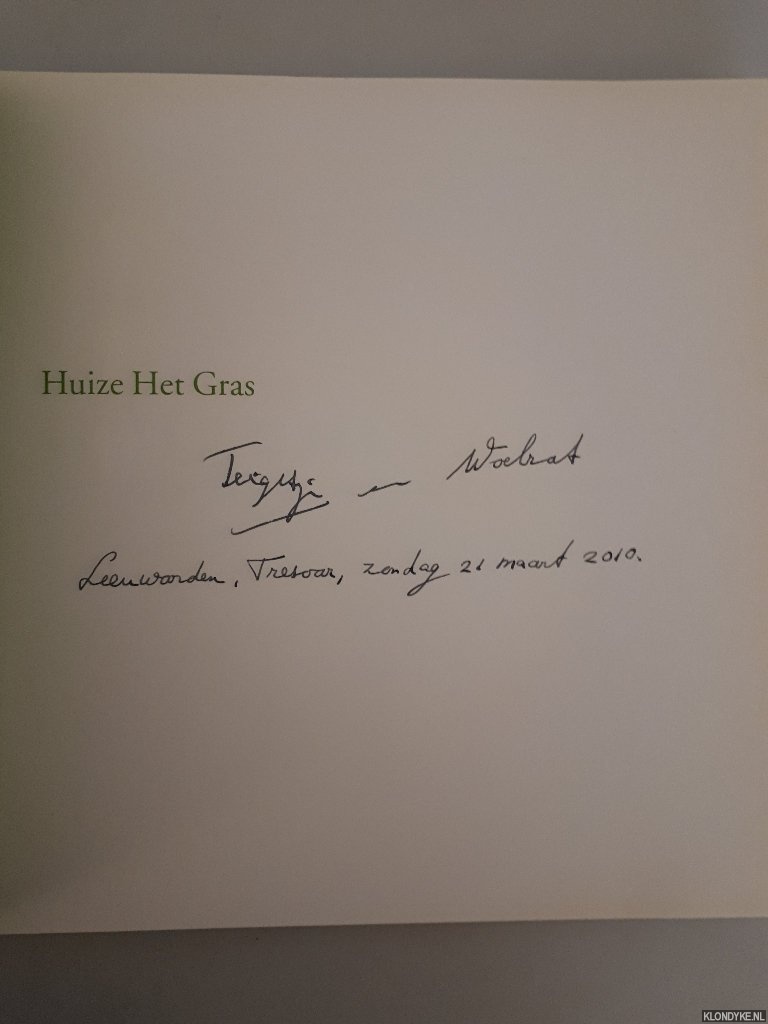 Huize Het Gras
Teigetje en Woelrat
Leeuwarden, Tresoar, zondag 21 maart 2010.
KLONDYKE.NL